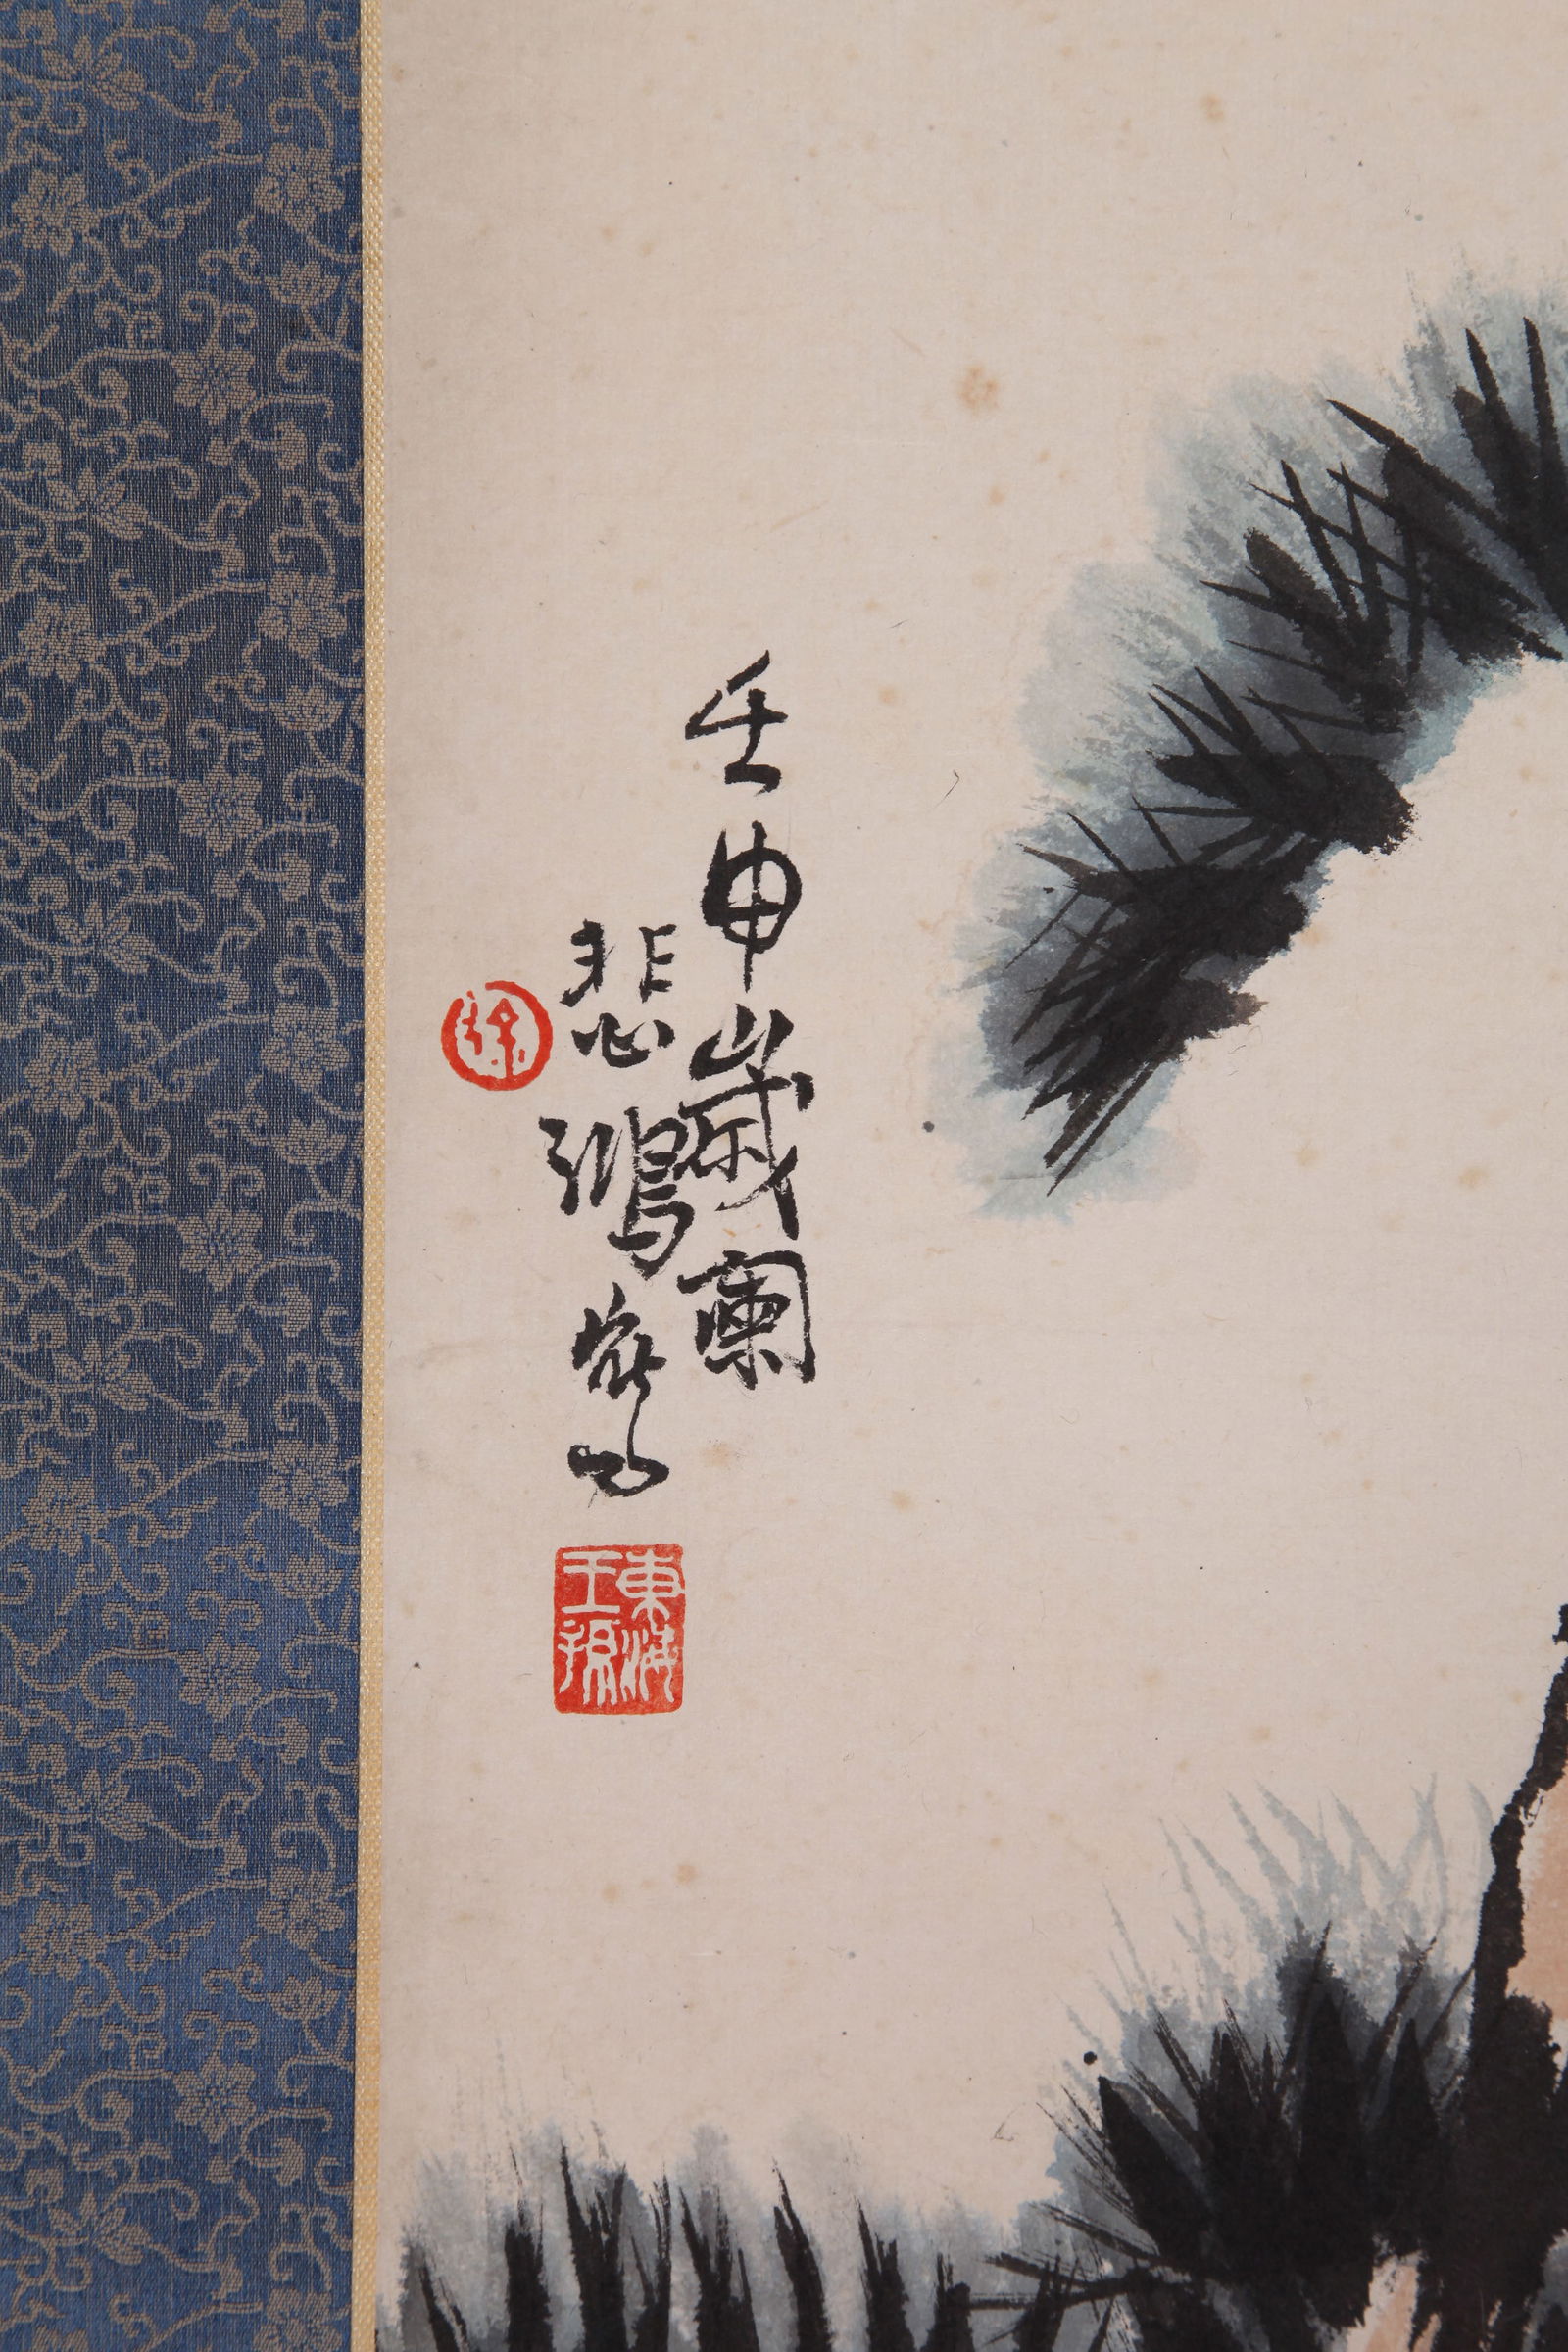 壬申歲闌
悲鴻寫
徐
東海
王孫